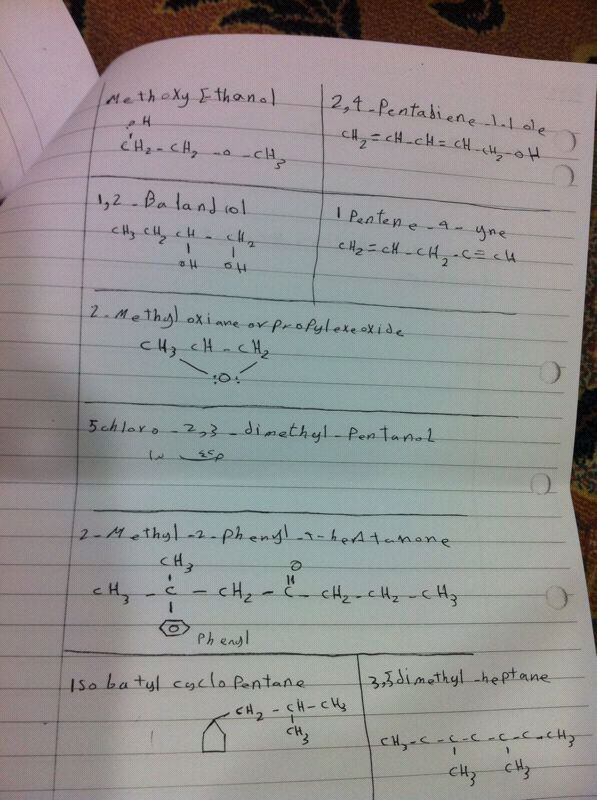 Methoxy Ethanol
OH
CH2 - CH2 - O - CH3
2,4-Pentadiene-1-1 ole
CH2=CH-CH=CH-CH2-OH
1,2-Batandiol
CH3 CH2 CH - CH2
OH OH
1 Pentene-4-yne
CH2=CH-CH2-C≡CH
2-Methyl oxiane or propylexeoxide
CH3 CH - CH2
:O:
5chloro-2,3-dimethyl-Pentanol
2-Methyl-2-phenyl-4-heptanone
CH3
O
CH3 - C - CH2 - C - CH2 - CH2 - CH3
Phenyl
Isobatyl cyclopentane
CH2 - CH - CH3
CH3
3,5dimethyl-heptane
CH3-C-C-C-C-C-CH3
CH3 CH3